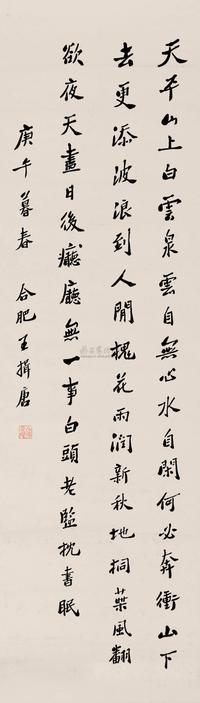 天平山上白雲泉雲自無心水自閑何必奔衝山下
去更添波浪到人間槐花雨潤新秋地桐葉風翻
欲夜天盡日後廳廳無一事白頭老監枕書眠
庚午暮春 合肥王揖唐